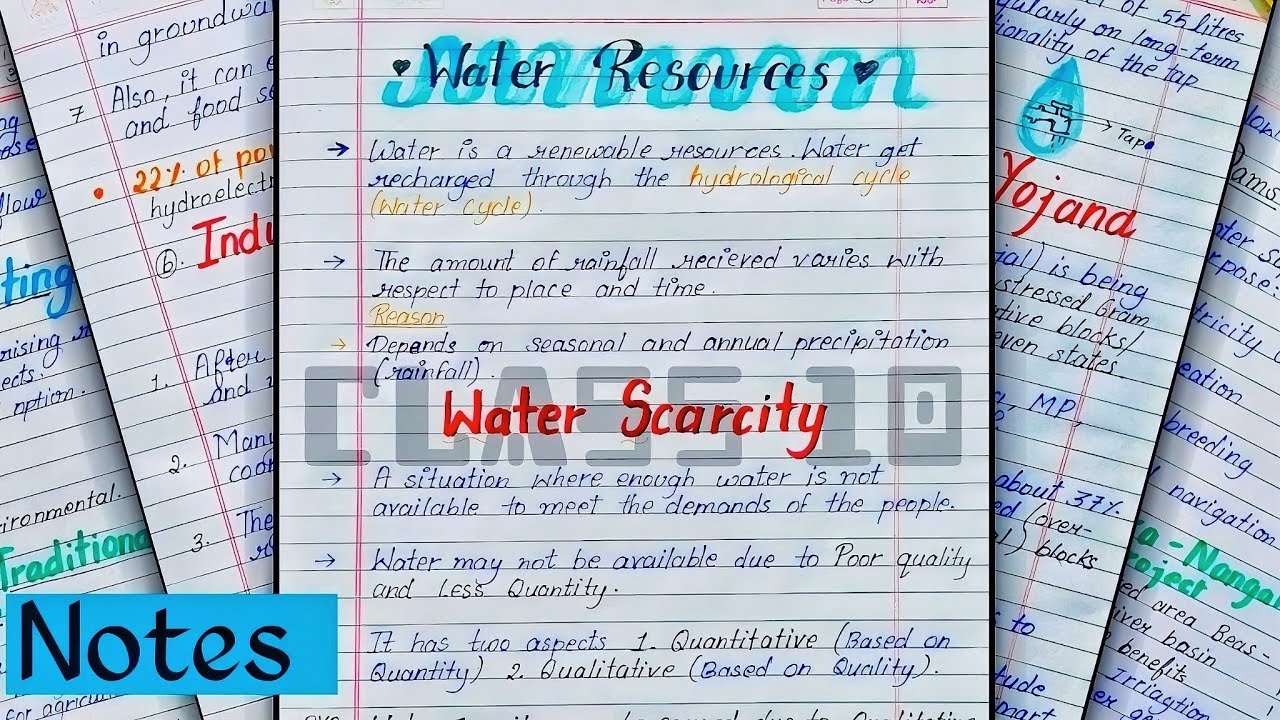 ♥ Water Resources ♥
→ Water is a renewable resources. Water get
recharged through the hydrological cycle
(Water Cycle).
→ The amount of rainfall recieved varies with
respect to place and time.
Reason
→ Depends on seasonal and annual precipitation
(rainfall).
CLASS 10
Water Scarcity
→ A situation where enough water is not
available to meet the demands of the people.
→ Water may not be available due to Poor quality
and Less Quantity.
It has two aspects 1. Quantitative (Based on
Quantity) 2. Qualitative (Based on Quality).
in groundwa
7 Also, it can
and food se
• 22% of po
hydroelectr
b. Indu
1. After
and
2. Manu
coo
3. The
flow
ting
rising
ects.
option.
ironmental.
Traditiona
for agricu
Notes
of 55 litres
gularly on long-term
tionality of the tap
→ Tap
Yojand
jal) is being
stressed Gram
ative blocks/
even states
MP,
about 37%
ed (over-
l) blocks
to
tude
mart
Dams
ter
rpose:
tricity
eation
breeding
navigation
ka-Nanga
project
ed area Beas-
river basin
benefits
Irrigation